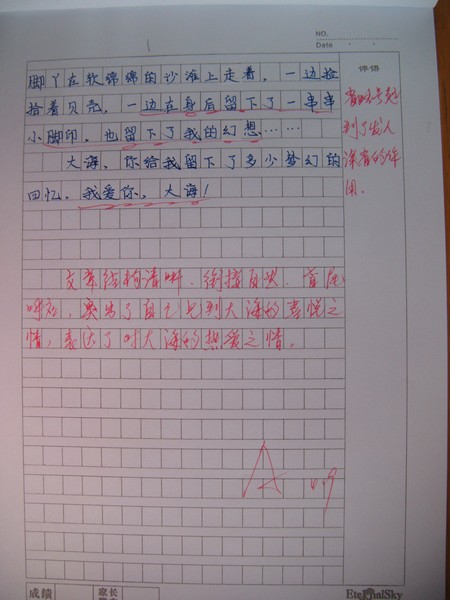 NO.
Date
评语
脚丫在软绵绵的沙滩上走着，一边捡
拾着贝壳，一边在身后留下了一串串
小脚印，也留下了我的幻想……
大海，你给我留下了多少梦幻的
回忆，我爱你，大海！
省略号起
到了发人
深省的作
用。
文章结构清晰，衔接自然，首尾
呼应，突出了自己见到大海的喜悦之
情，表达了对大海的热爱之情。
A
成绩
家长
EternalSky